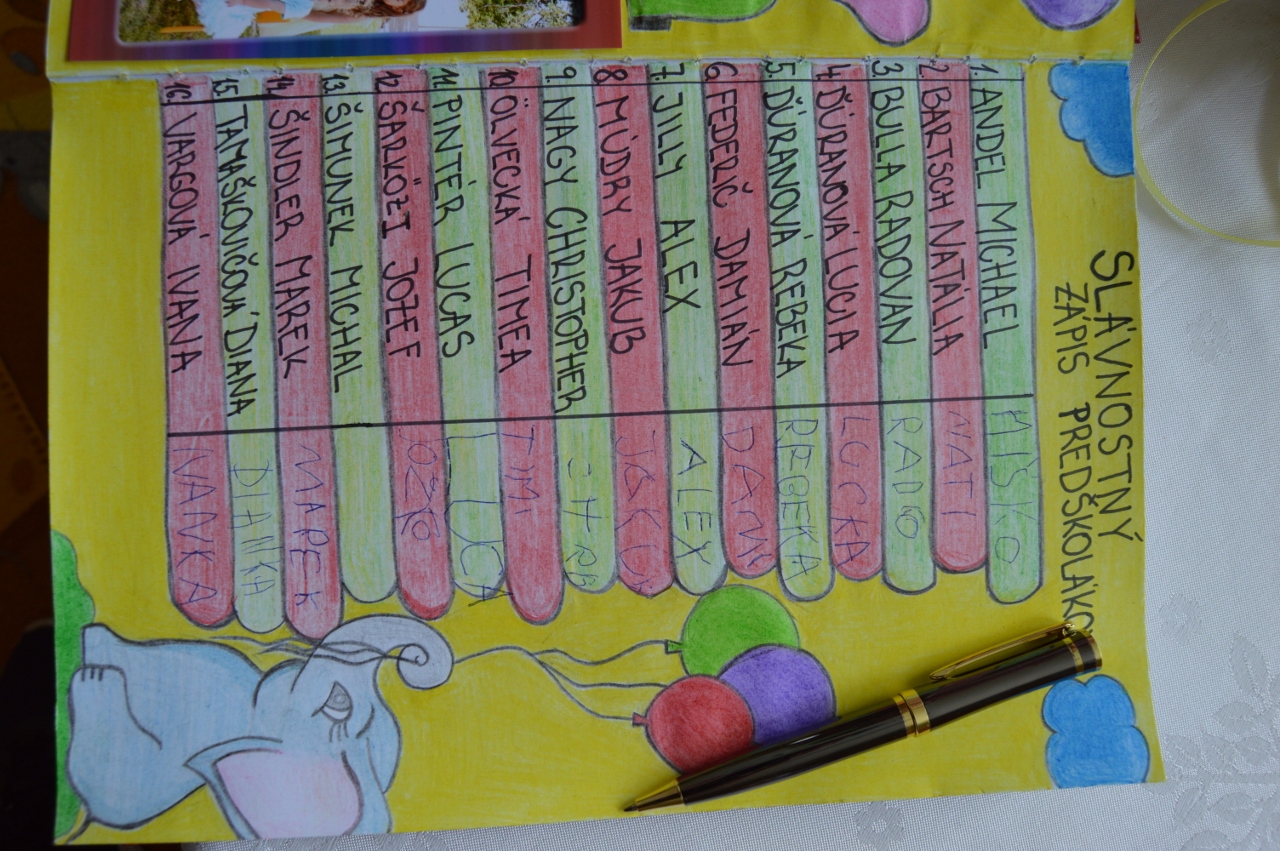 SLÁVNOSTNÝ
ZÁPIS PREDŠKOLÁKO
1. ANDEL MICHAEL MIŠKO
2. BARTSCH NATÁLIA NATI
3. BULLA RADOVAN RADO
4. ĎURANOVÁ LUCIA LUCKA
5. ĎURANOVÁ REBEKA REBEKA
6. FEDERIČ DAMIÁN DAMI
7. JILLY ALEX ALEX
8. MÚDRY JAKUB
9. NAGY CHRISTOPHER
10. ÖLVECKÁ TIMEA TIMI
11. PINTÉR LUCAS LUCA
12. ŠARKÖZI JOZEF
13. ŠIMUNEK MICHAL
14. ŠINDLER MAREK MAREK
15. TAMAŠKOVIČOVÁ DIANA DIANKA
16. VARGOVÁ IVANA IVANKA